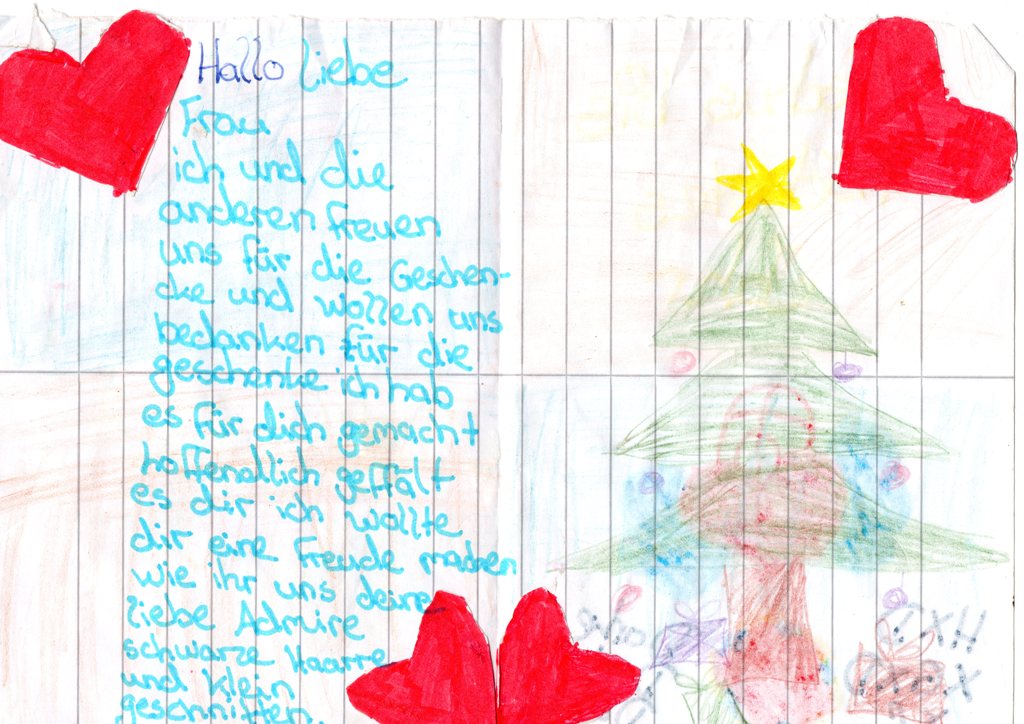 Hallo liebe
Frau
ich und die
anderen freuen
uns für die Geschen-
cke und wollen uns
bedanken für die
geschenke ich hab
es für dich gemacht
hoffendlich geffält
es dir ich wollte
dir eine Freude machen
wie ihr uns deine
liebe Admire
schwarze Haarre
und klein
geschnitten.